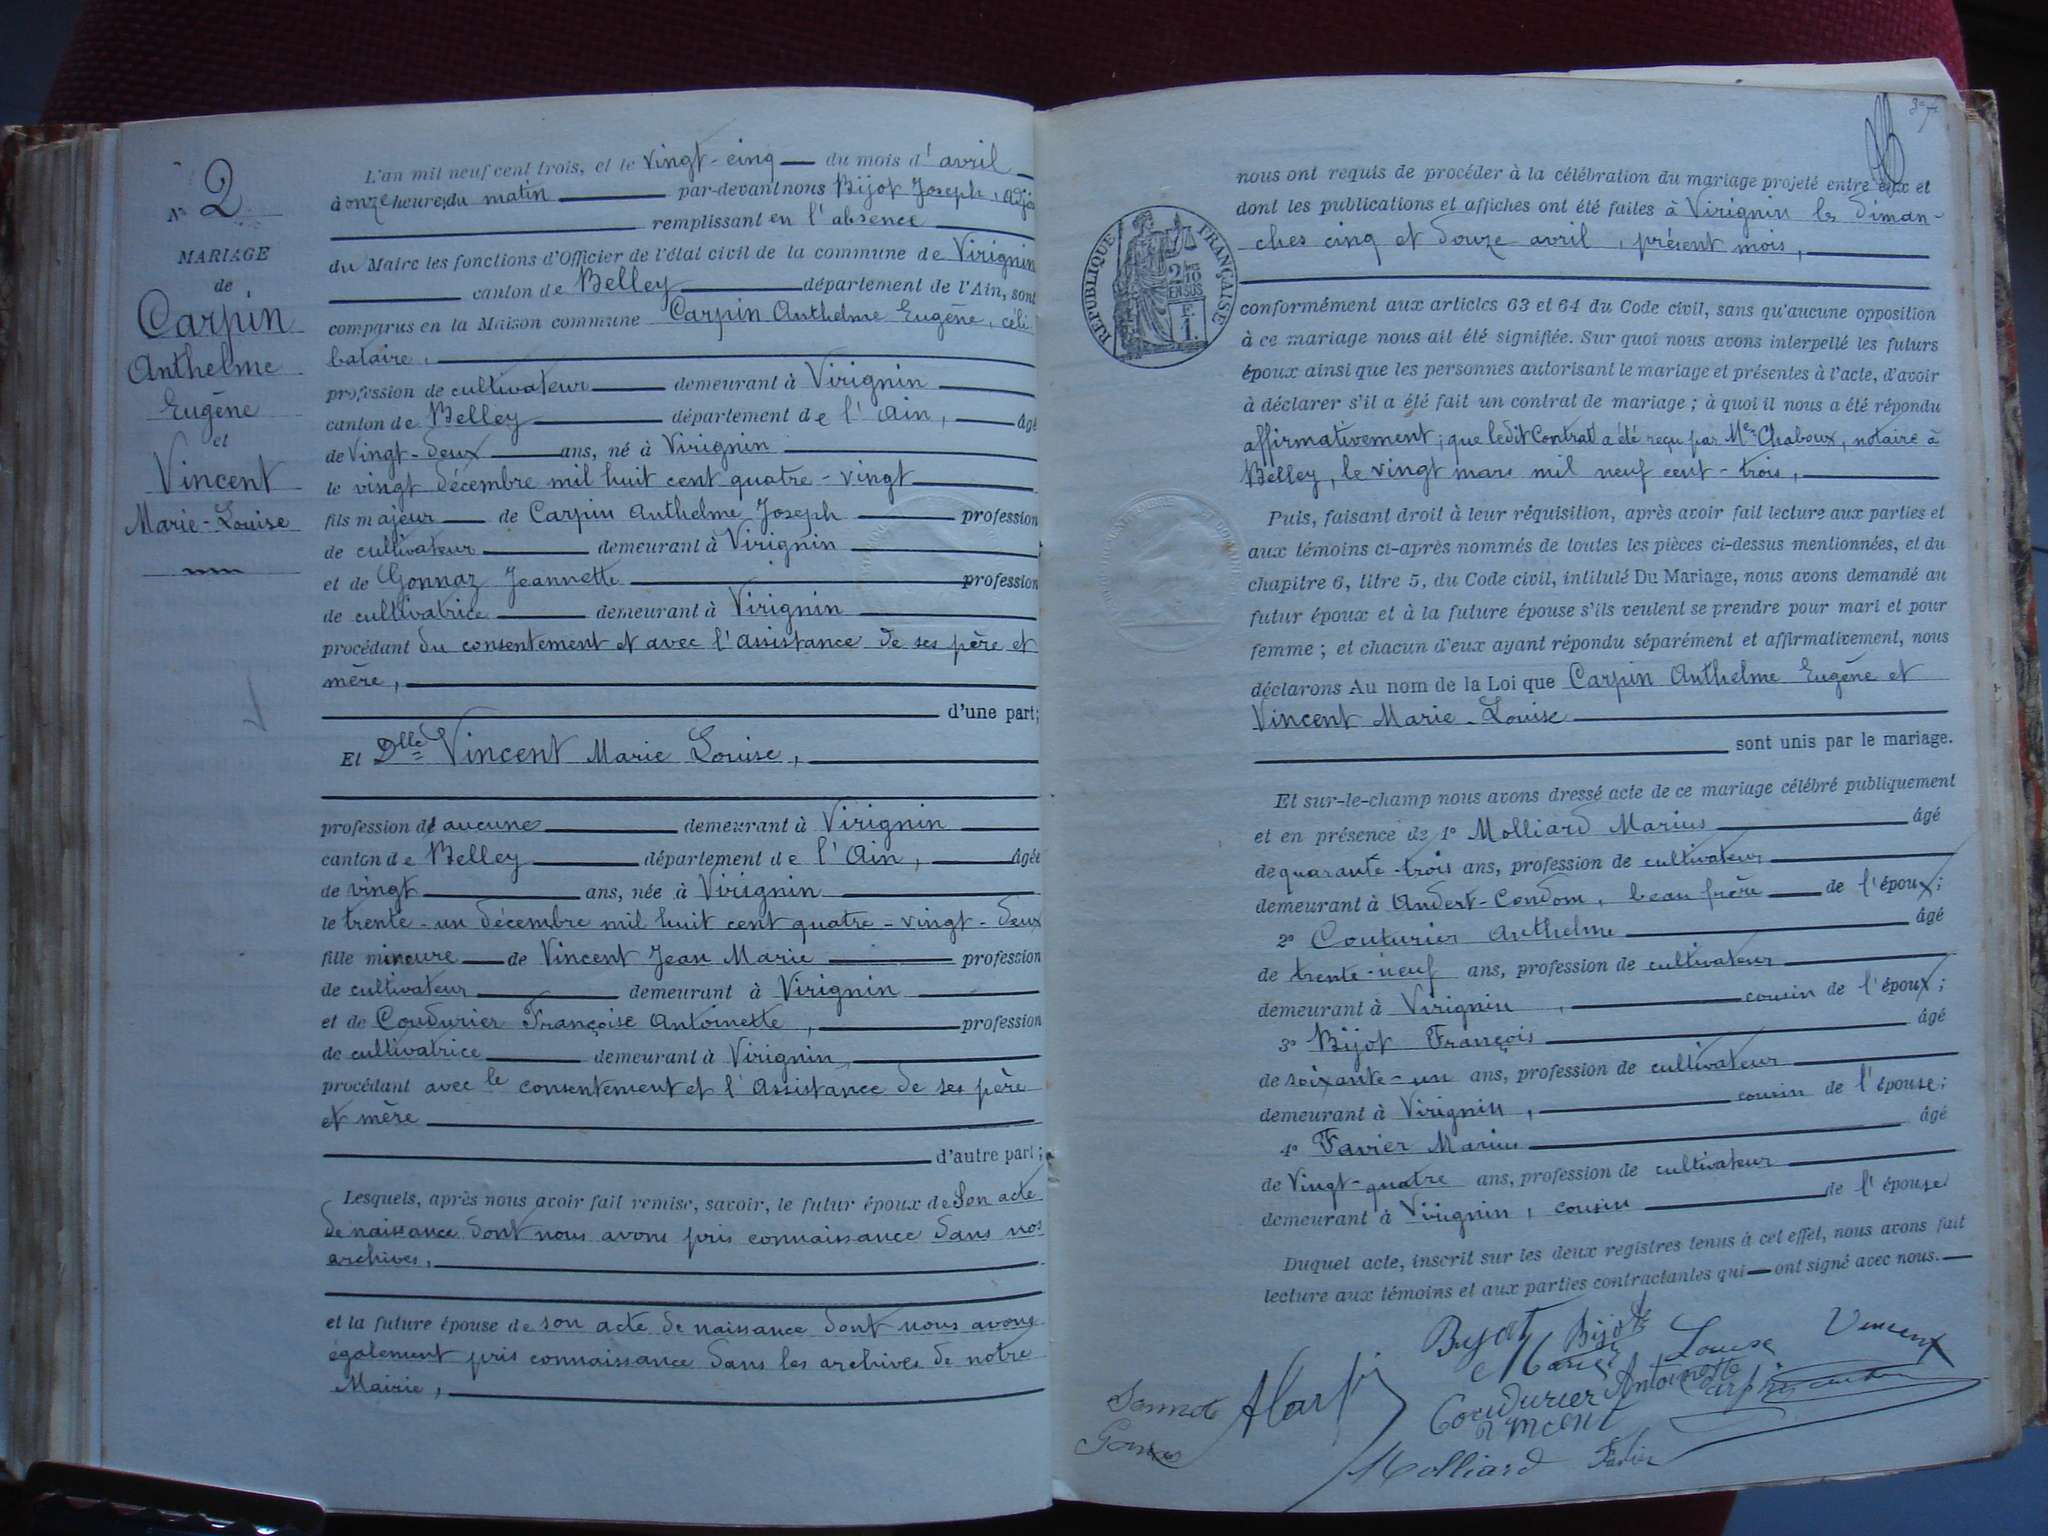 N° 2
MARIAGE
de
Carpin
Anthelme
Eugène
et
Vincent
Marie-Louise
L'an mil neuf cent trois, et le vingt-cinq du mois d'avril
à onze heures du matin par-devant nous Bijot Joseph, adjoi
remplissant en l'absence
du Maire les fonctions d'Officier de l'état civil de la commune de Virignin
canton de Belley département de l'Ain, sont
comparus en la Maison commune Carpin Anthelme Eugène, céli
bataire,
profession de cultivateur demeurant à Virignin
canton de Belley département de l'Ain, âgé
de Vingt-deux ans, né à Virignin
le vingt décembre mil huit cent quatre-vingt
fils majeur de Carpin Anthelme Joseph profession
de cultivateur demeurant à Virignin
et de Gonnaz Jeannette profession
de cultivatrice demeurant à Virignin
procédant du consentement et avec l'assistance de ses père et
mère,
d'une part;
Et Dlle Vincent Marie Louise,
profession de aucune demeurant à Virignin
canton de Belley département de l'Ain, âgée
de vingt ans, née à Virignin
le trente-un décembre mil huit cent quatre-vingt-deux
fille mineure de Vincent Jean Marie profession
de cultivateur demeurant à Virignin
et de Coudurier Françoise Antoinette, profession
de cultivatrice demeurant à Virignin
procédant avec le consentement et l'assistance de ses père
et mère
d'autre part;
Lesquels, après nous avoir fait remise, savoir, le futur époux de Son acte
de naissance dont nous avons pris connaissance dans nos
archives,
et la future épouse de son acte de naissance dont nous avons
également pris connaissance dans les archives de notre
Mairie,
nous ont requis de procéder à la célébration du mariage projeté entre eux et
dont les publications et affiches ont été faites à Virignin les diman-
ches cinq et douze avril, présent mois,
RÉPUBLIQUE FRANÇAISE
2/10
EN SUS
F.
1.
conformément aux articles 63 et 64 du Code civil, sans qu'aucune opposition
à ce mariage nous ait été signifiée. Sur quoi nous avons interpellé les futurs
époux ainsi que les personnes autorisant le mariage et présentes à l'acte, d'avoir
à déclarer s'il a été fait un contrat de mariage; à quoi il nous a été répondu
affirmativement; que ledit Contrat a été reçu par Me Chaboux, notaire à
Belley, le vingt mars mil neuf cent-trois,
Puis, faisant droit à leur réquisition, après avoir fait lecture aux parties et
aux témoins ci-après nommés de toutes les pièces ci-dessus mentionnées, et du
chapitre 6, titre 5, du Code civil, intitulé Du Mariage, nous avons demandé au
futur époux et à la future épouse s'ils veulent se prendre pour mari et pour
femme; et chacun d'eux ayant répondu séparément et affirmativement, nous
déclarons Au nom de la Loi que Carpin Anthelme Eugène et
Vincent Marie-Louise
sont unis par le mariage.
Et sur-le-champ nous avons dressé acte de ce mariage célébré publiquement
et en présence de 1° Molliard Marius âgé
de quarante-trois ans, profession de cultivateur
demeurant à Andert-Condom, beau frère de l'époux;
2° Couturier Anthelme âgé
de trente-neuf ans, profession de cultivateur
demeurant à Virignin, cousin de l'époux;
3° Bijot François âgé
de soixante-un ans, profession de cultivateur
demeurant à Virignin, cousin de l'épouse;
4° Favier Marius âgé
de Vingt-quatre ans, profession de cultivateur
demeurant à Virignin, cousin de l'épouse
Duquel acte, inscrit sur les deux registres tenus à cet effet, nous avons fait
lecture aux témoins et aux parties contractantes qui ont signé avec nous.
Bijot Bijot Louise Vincent
Marie
Coudurier Antoinette
Vincent
Molliard Favier